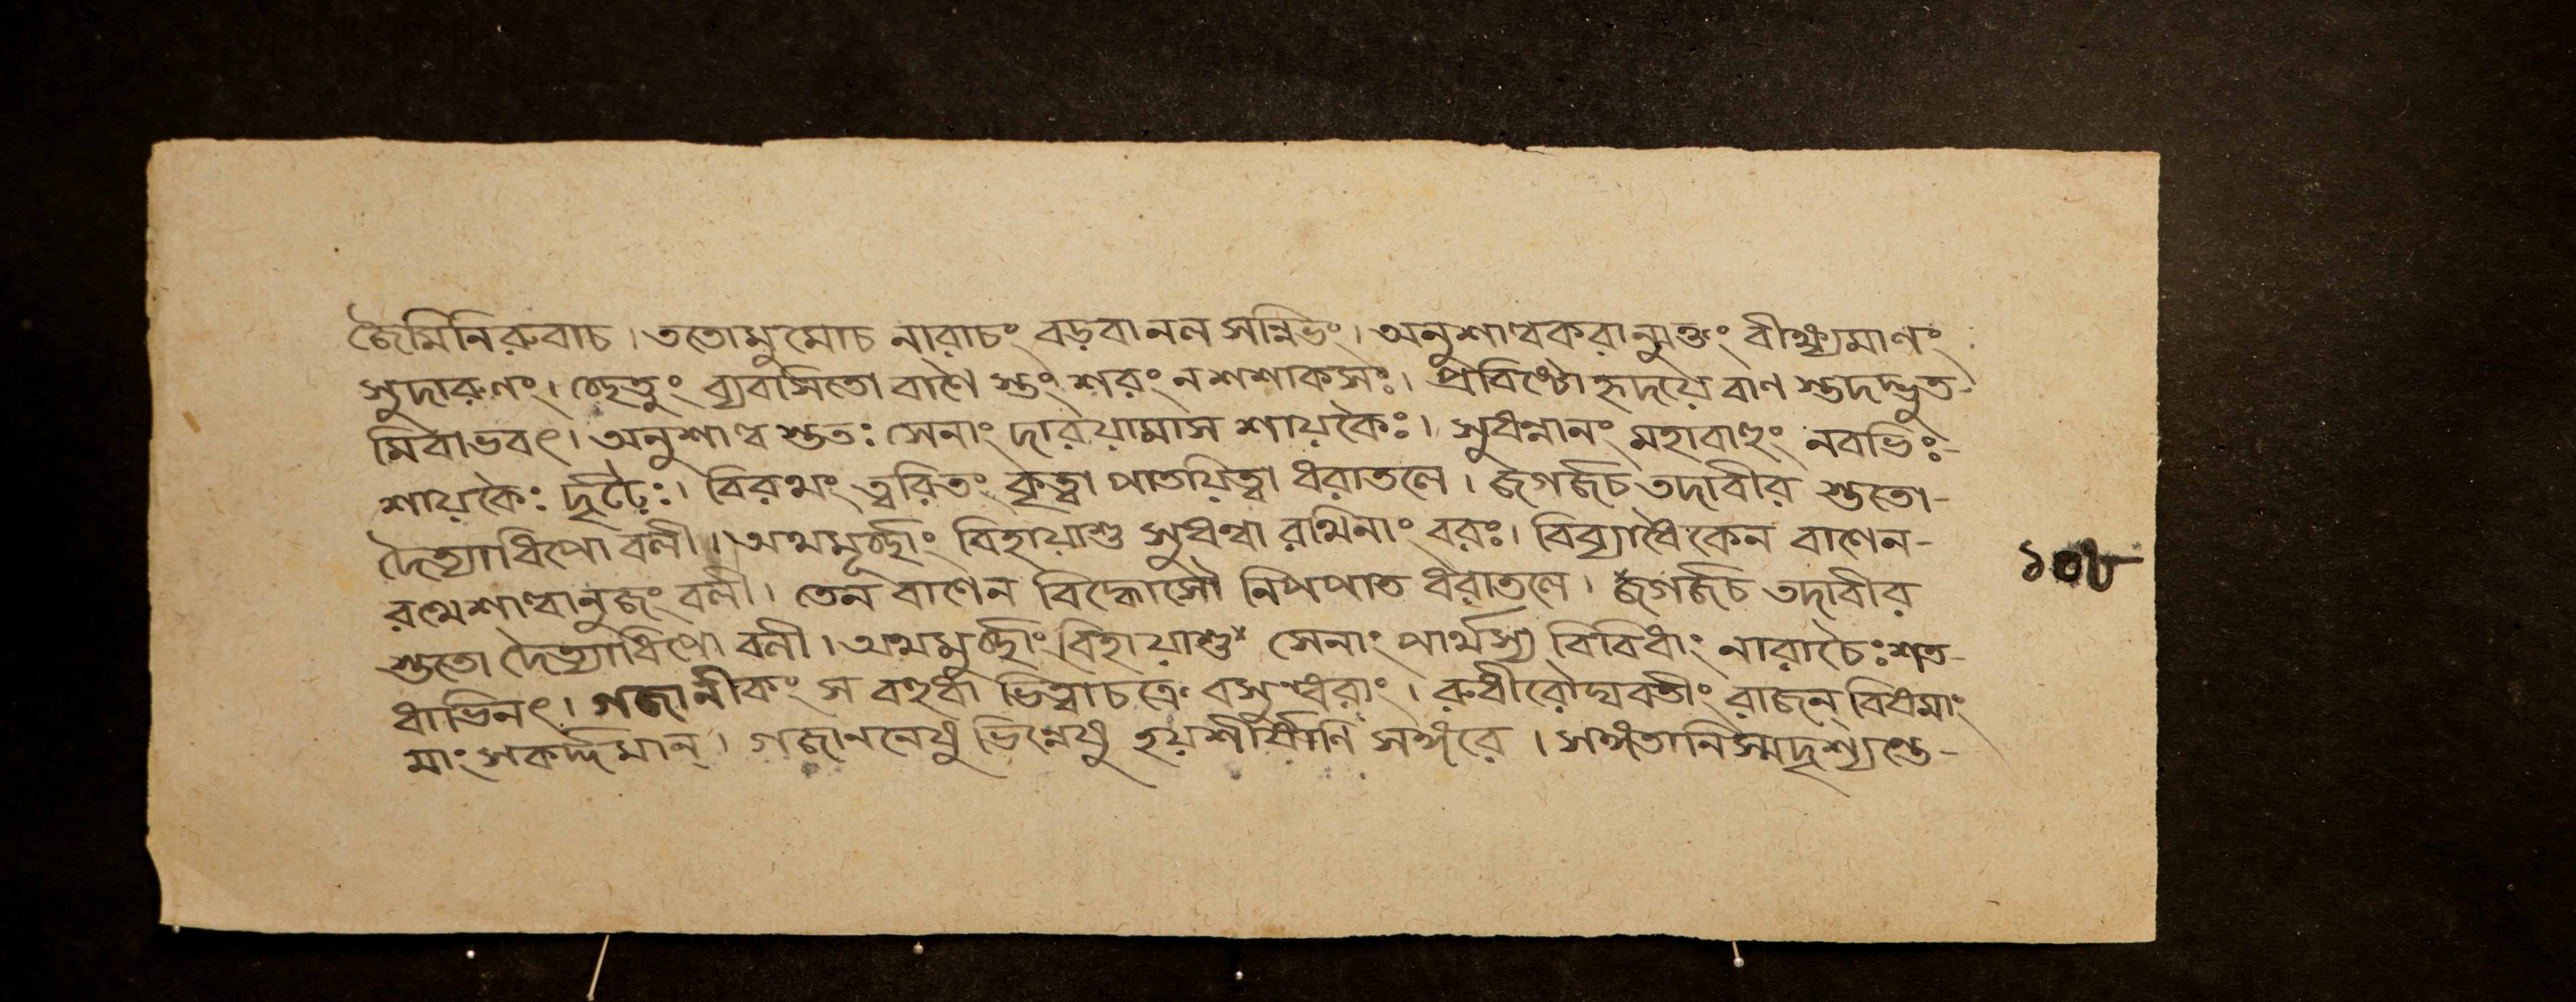 জৈমিনিরুবাচ । ততোমুমোচ নারাচং বড়বানল সন্নিভং । অনুশাল্বকরান্মুক্তং বীক্ষ্যমাণং
সুদারুণং । ছেত্তুং ব্যবসিতো বাণৈ স্তং শরং ন শশাকসঃ । প্রবিষ্টো হৃদয়ে বাণ স্তদদ্ভুত-
মিবাভবৎ । অনুশাল্ব স্ততঃ সেনাং দারয়ামাস শায়কৈঃ । সুধন্নানং মহাবাহুং নবভিঃ-
শায়কৈঃ দৃঢ়ৈঃ । বিরথং ত্বরিতং কৃত্বা পাতয়িত্বা ধরাতলে । জগর্জচ তদাবীর স্ততো-
দৈত্যাধিপো বলী । অথমূর্চ্ছাং বিহায়াশু সুধন্বা রথিনাং বরঃ । বিব্যাধৈকেন বাণেন-
রথেশাল্বানুজং বলী । তেন বাণেন বিদ্ধোসৌ নিপপাত ধরাতলে । জগর্জচ তদাবীর
স্ততো দৈত্যাধিপো বলী । অথমুর্চ্ছাং বিহায়াশু সেনাং পার্থস্য বিবিধাং নারাচৈঃ শত-
ধাভিনৎ । গজানীকং স বহুধা ভিত্বাচক্রে বসুন্ধরাং । রুধীরৌঘবতীং রাজন্ বিধমাং
মাং সকর্দ্দমান্ । গজাননেষু ভিন্নেষু হয়শীর্ষাণি সঙ্গরে । সঙ্গতানিস্মদৃশ্যন্তে-
১০৮